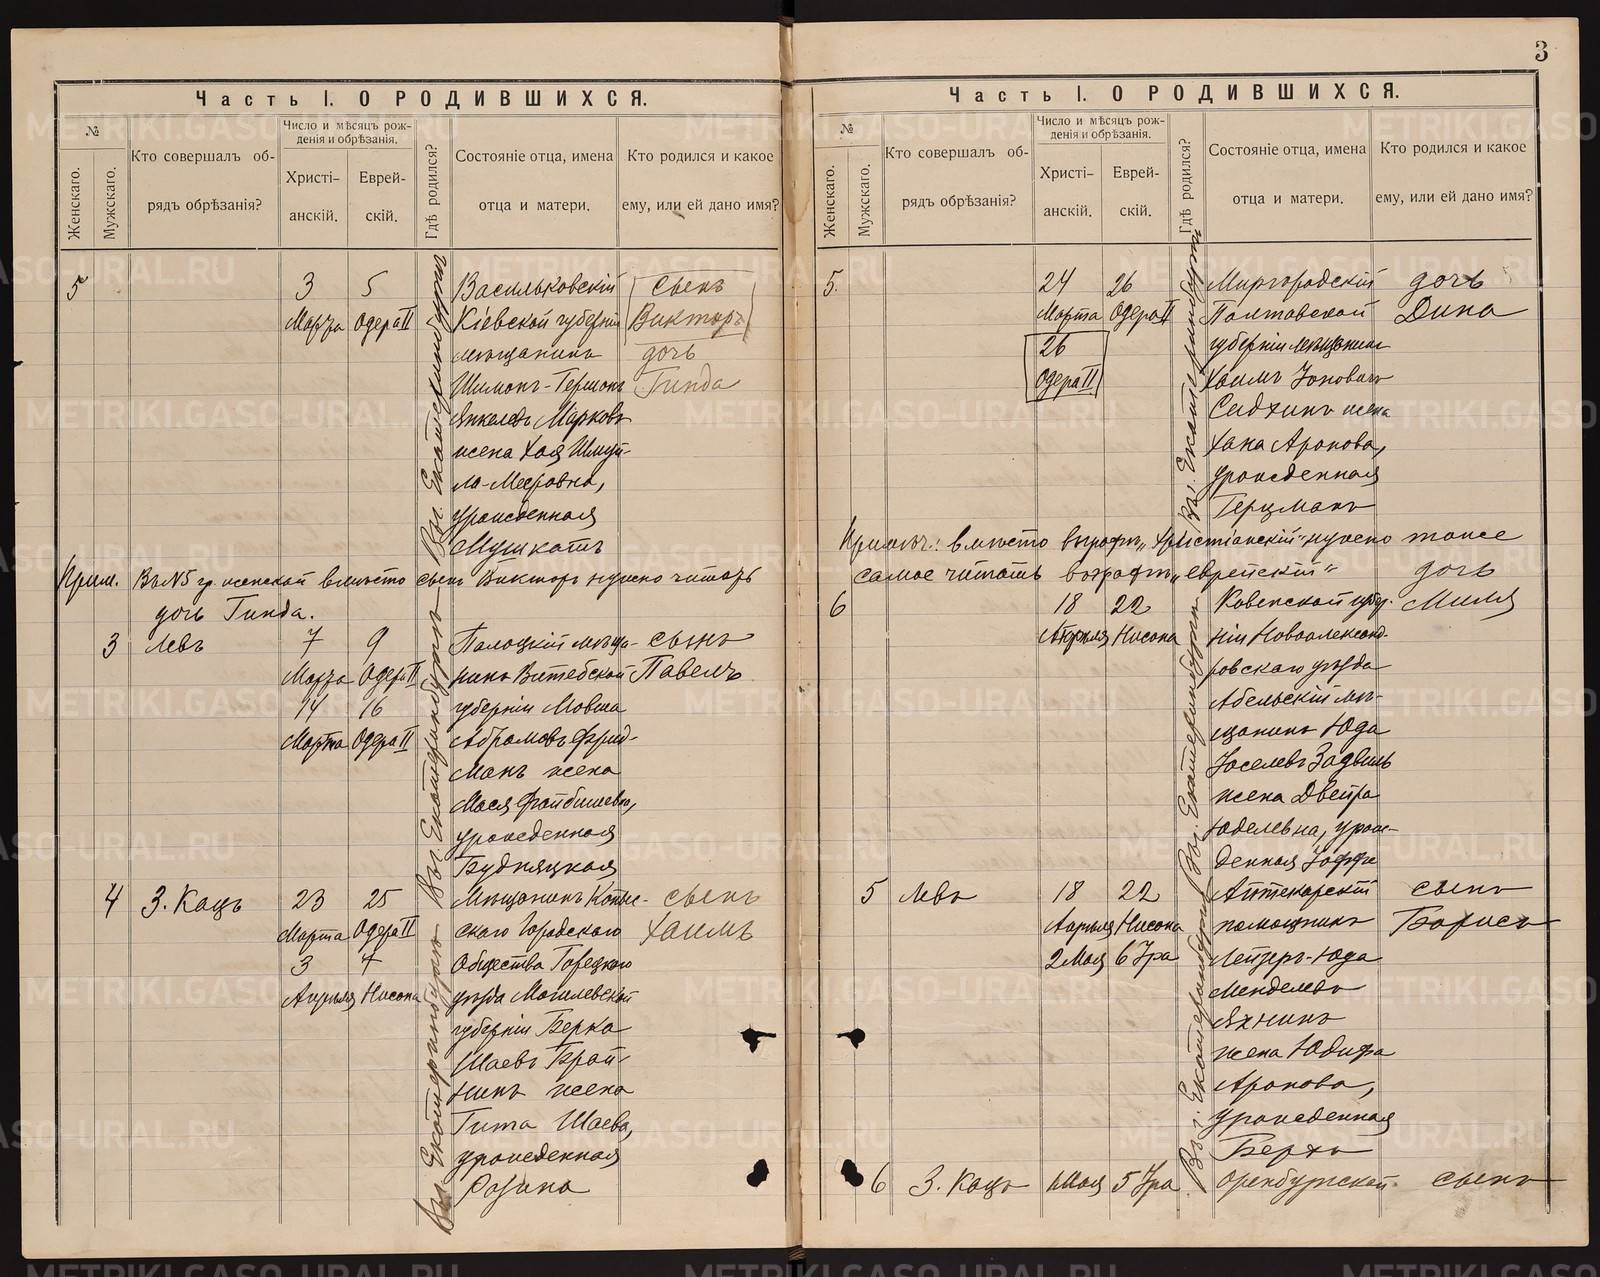 Часть I. О РОДИВШИХСЯ.
№
Женскаго.
Мужскаго.
Кто совершалъ об-
рядъ обрѣзанія?
Число и мѣсяцъ рож-
денія и обрѣзанія.
Христі-
анскій.
Еврей-
скій.
Гдѣ родился?
Состояніе отца, имена
отца и матери.
Кто родился и какое
ему, или ей дано имя?
5 3 5 Васильковскій сынъ
Марта Одера II Кіевской губерніи Викторъ
мѣщанинъ дочь
Шимонъ-Гершонъ Гинда
Янкелевъ Марковъ
жена Хая Шмуй-
ла-Мееровна,
урожденная
Мушкатъ
Въ г. Екатеринбургѣ
Прим. Въ №5 гр. женской вмѣсто сынъ Викторъ нужно читать
дочь Гинда.
3 Левъ 7 9 Полоцкій мѣща- сынъ
Марта Одера II нинъ Витебской Павелъ
14 16 губерніи Мовша
Марта Одера II Абрамовъ Фрид-
манъ жена
Мася Файбишевна,
урожденная
Будняцкая
Въ г. Екатеринбургѣ
4 З. Кацъ 23 25 Мѣщанинъ Копыс- сынъ
Марта Одера II скаго Городскаго Хаимъ
3 7 Общества Горецкаго
Апрѣля Нисона уѣзда Могилевской
губерніи Берка
Шаевъ Брай-
нинъ жена
Гита Шаева,
урожденная
Розина
Въ г. Екатеринбургѣ
3
Часть I. О РОДИВШИХСЯ.
№
Женскаго.
Мужскаго.
Кто совершалъ об-
рядъ обрѣзанія?
Число и мѣсяцъ рож-
денія и обрѣзанія.
Христі-
анскій.
Еврей-
скій.
Гдѣ родился?
Состояніе отца, имена
отца и матери.
Кто родился и какое
ему, или ей дано имя?
5. 24 26 Миргородскій дочь
Марта Одера II Полтавской Дина
26 губерніи мѣщанинъ
Одера II Хаимъ
жена
Хана Аронова,
урожденная
Герцманъ
Въ г. Екатеринбургѣ
Примѣч.: вмѣсто въ графѣ „Христіанскій" нужно тоже
самое читать въ графѣ „еврейскій" дочь
6 18 22 Ковенской губер- Миля
Апрѣля Нисона ніи Новоалександ-
ровскаго уѣзда
Абельскій мѣ-
щанинъ Юда
Іоселевъ
жена Двейра
Юделевна, урож-
денная Іоффе
Въ г. Екатеринбургѣ
5 Левъ 18 22 Аптекарскій сынъ
Апрѣля Нисона помощникъ Борисъ
2 Мая 6 Іра Лейзеръ-Юда
Менделевъ
Яхнинъ
жена Юдифа
Аронова,
урожденная
Въ г. Екатеринбургѣ
6 З. Кацъ 1 Мая 5 Іра Оренбургской сынъ
METRIKI.GASO-URAL.RU